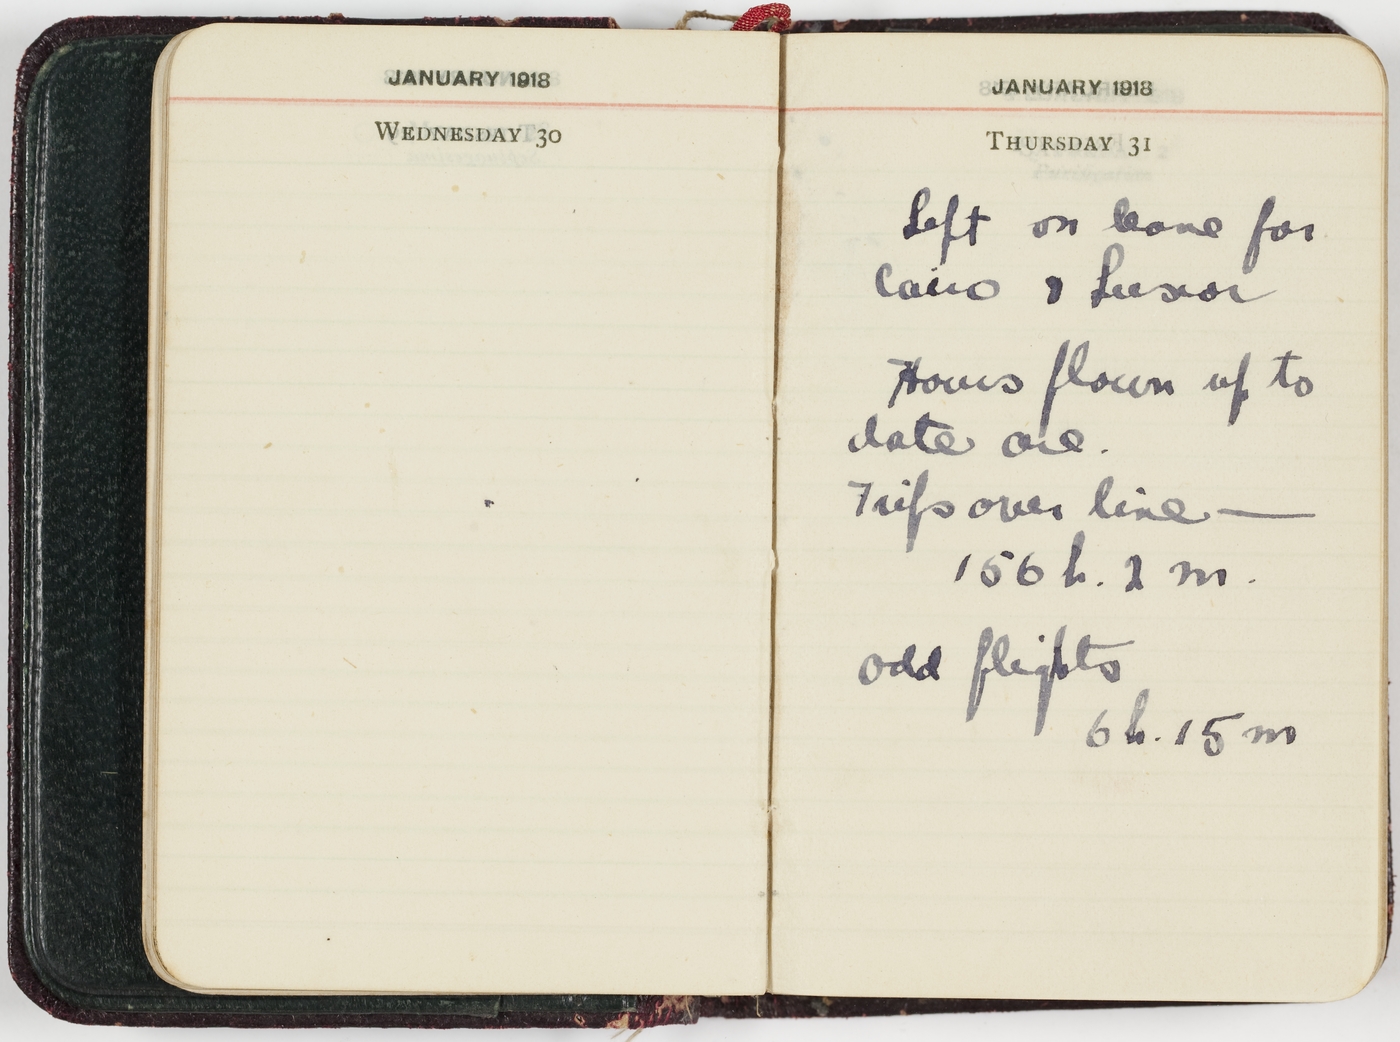 JANUARY 1918
WEDNESDAY 30
JANUARY 1918
THURSDAY 31
Left on leave for
Cairo & Luxor
Hours flown up to
date are.
Trips over line —
156 h. 2 m.
odd flights
6 h. 15 m